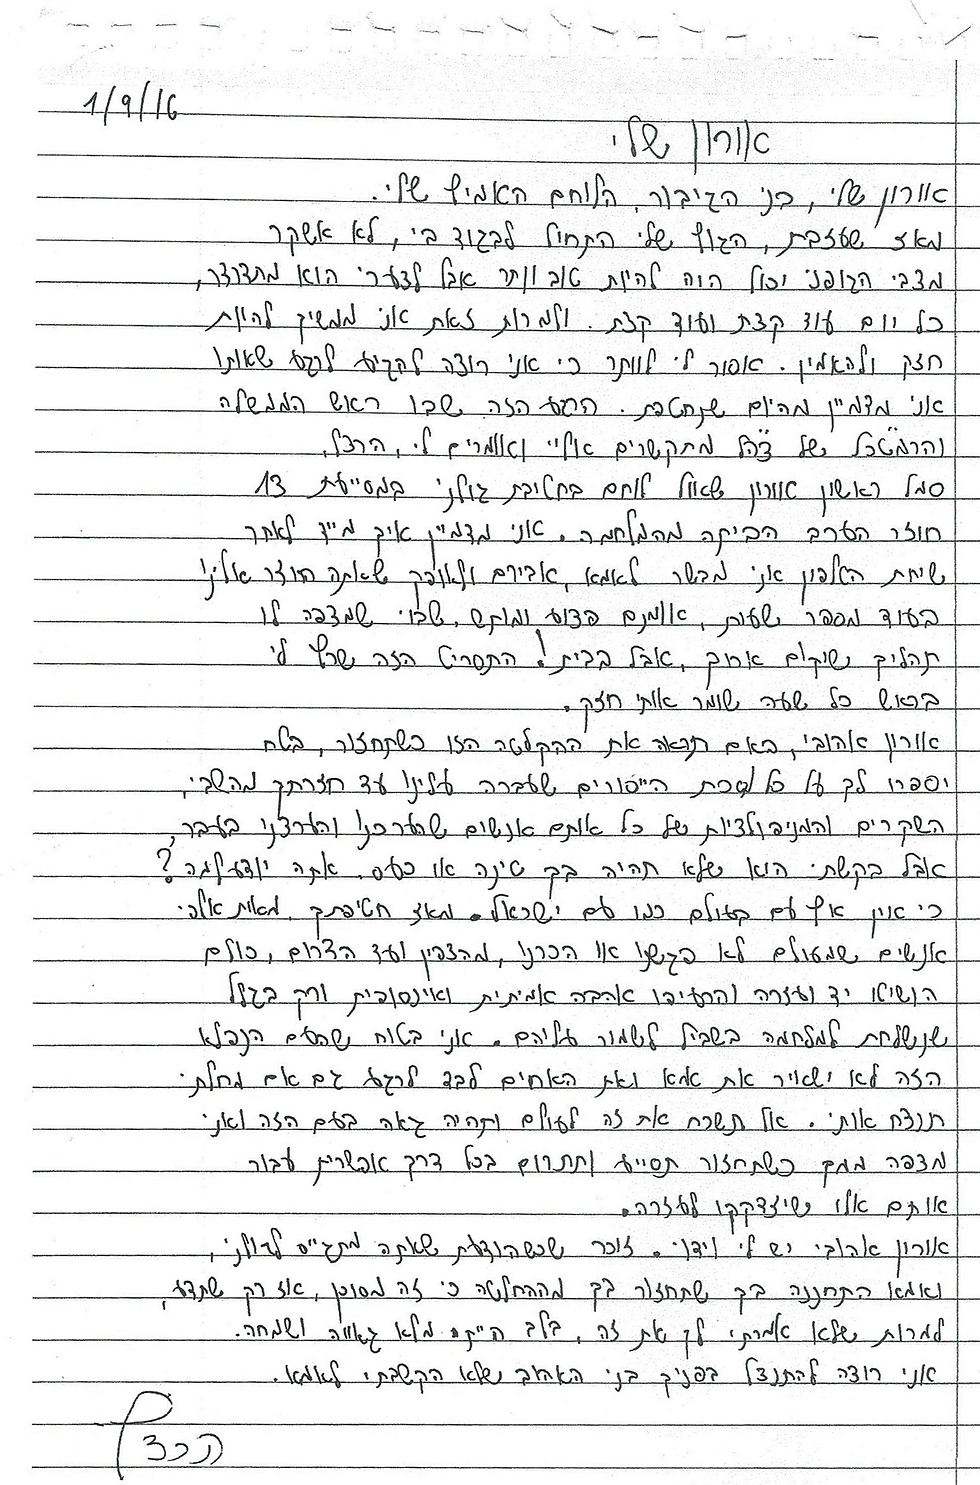 1/9/16
אורון שלי
אורון שלי, בני הגיבור, הלוחם האמיץ שלי.
מאז שעזבת, הגוף שלי התחיל לבגוד בי, לא אשקר
מצבי הגופני יכול היה להיות טוב יותר אבל לצערי הוא מתדרדר,
כל יום עוד קצת ועוד קצת. ולמרות זאת אני ממשיך להיות
חזק ולהאמין. אסור לי לוותר כי אני רוצה להגיע לרגע שאותו
אני מדמיין מהיום שנחטפת. הרגע הזה שבו ראש הממשלה
והרמטכ"ל של צה"ל מתקשרים אליי ואומרים לי, הרצל,
סמל ראשון אורון שאול לוחם בחטיבת גולני במסייעת 13
חוזר הערב הביתה מהמלחמה. אני מדמיין איך מייד לאחר
שיחת הטלפון אני מבשר לאמא, אבירם ולאופק שאתה חוזר אלינו
בעוד מספר שעות, אומנם פצוע ומותש, שבוי שמצפה לו
תהליך שיקום ארוך, אבל בבית! התסריט הזה שרץ לי
בראש כל שעה שומר אותי חזק.
אורון אהובי, באם תראה את ההקלטה הזו כשתחזור, בטח
יספרו לך על כל מסכת הייסורים שעברה עלינו עד חזרתך מהשבי,
השקרים והמניפולציות של כל אותם אנשים שהערכנו והערצנו בעבר,
אבל בקשתי הוא שלא תהיה בך טינה או כעס. אתה יודע למה?
כי אין אף עם בעולם כמו עם ישראל. מאז חטיפתך, מאות אלפי
אנשים שמעולם לא פגשנו או הכרנו, מהצפון ועד הדרום, כולם
הושיטו יד ועזרה והרעיפו אהבה אמיתית ואינסופית ורק בגלל
שנשלחת למלחמה בשביל לשמור עליהם. אני בטוח שהעם הנפלא
הזה לא ישאיר את אמא ואת האחים לבד לרגע גם אם מחלתי
תנצח אותי. אל תשכח את זה לעולם ותהיה גאה בעם הזה ואני
מצפה ממך כשתחזור תסייע ותתרום בכל דרך אפשרית עבור
אותם אלו שיזדקקו לעזרה.
אורון אהובי יש לי וידוי. זוכר שכשהודעת שאתה מתגייס לגולני,
ואמא התחננה בך שתחזור בך מההחלטה כי זה מסוכן, אז רק שתדע,
למרות שלא אמרתי לך את זה, בלב הייתי מלא גאווה ושמחה.
אני רוצה להתנצל בפניך בני האהוב שלא הקשבתי לאמא.
הרצל